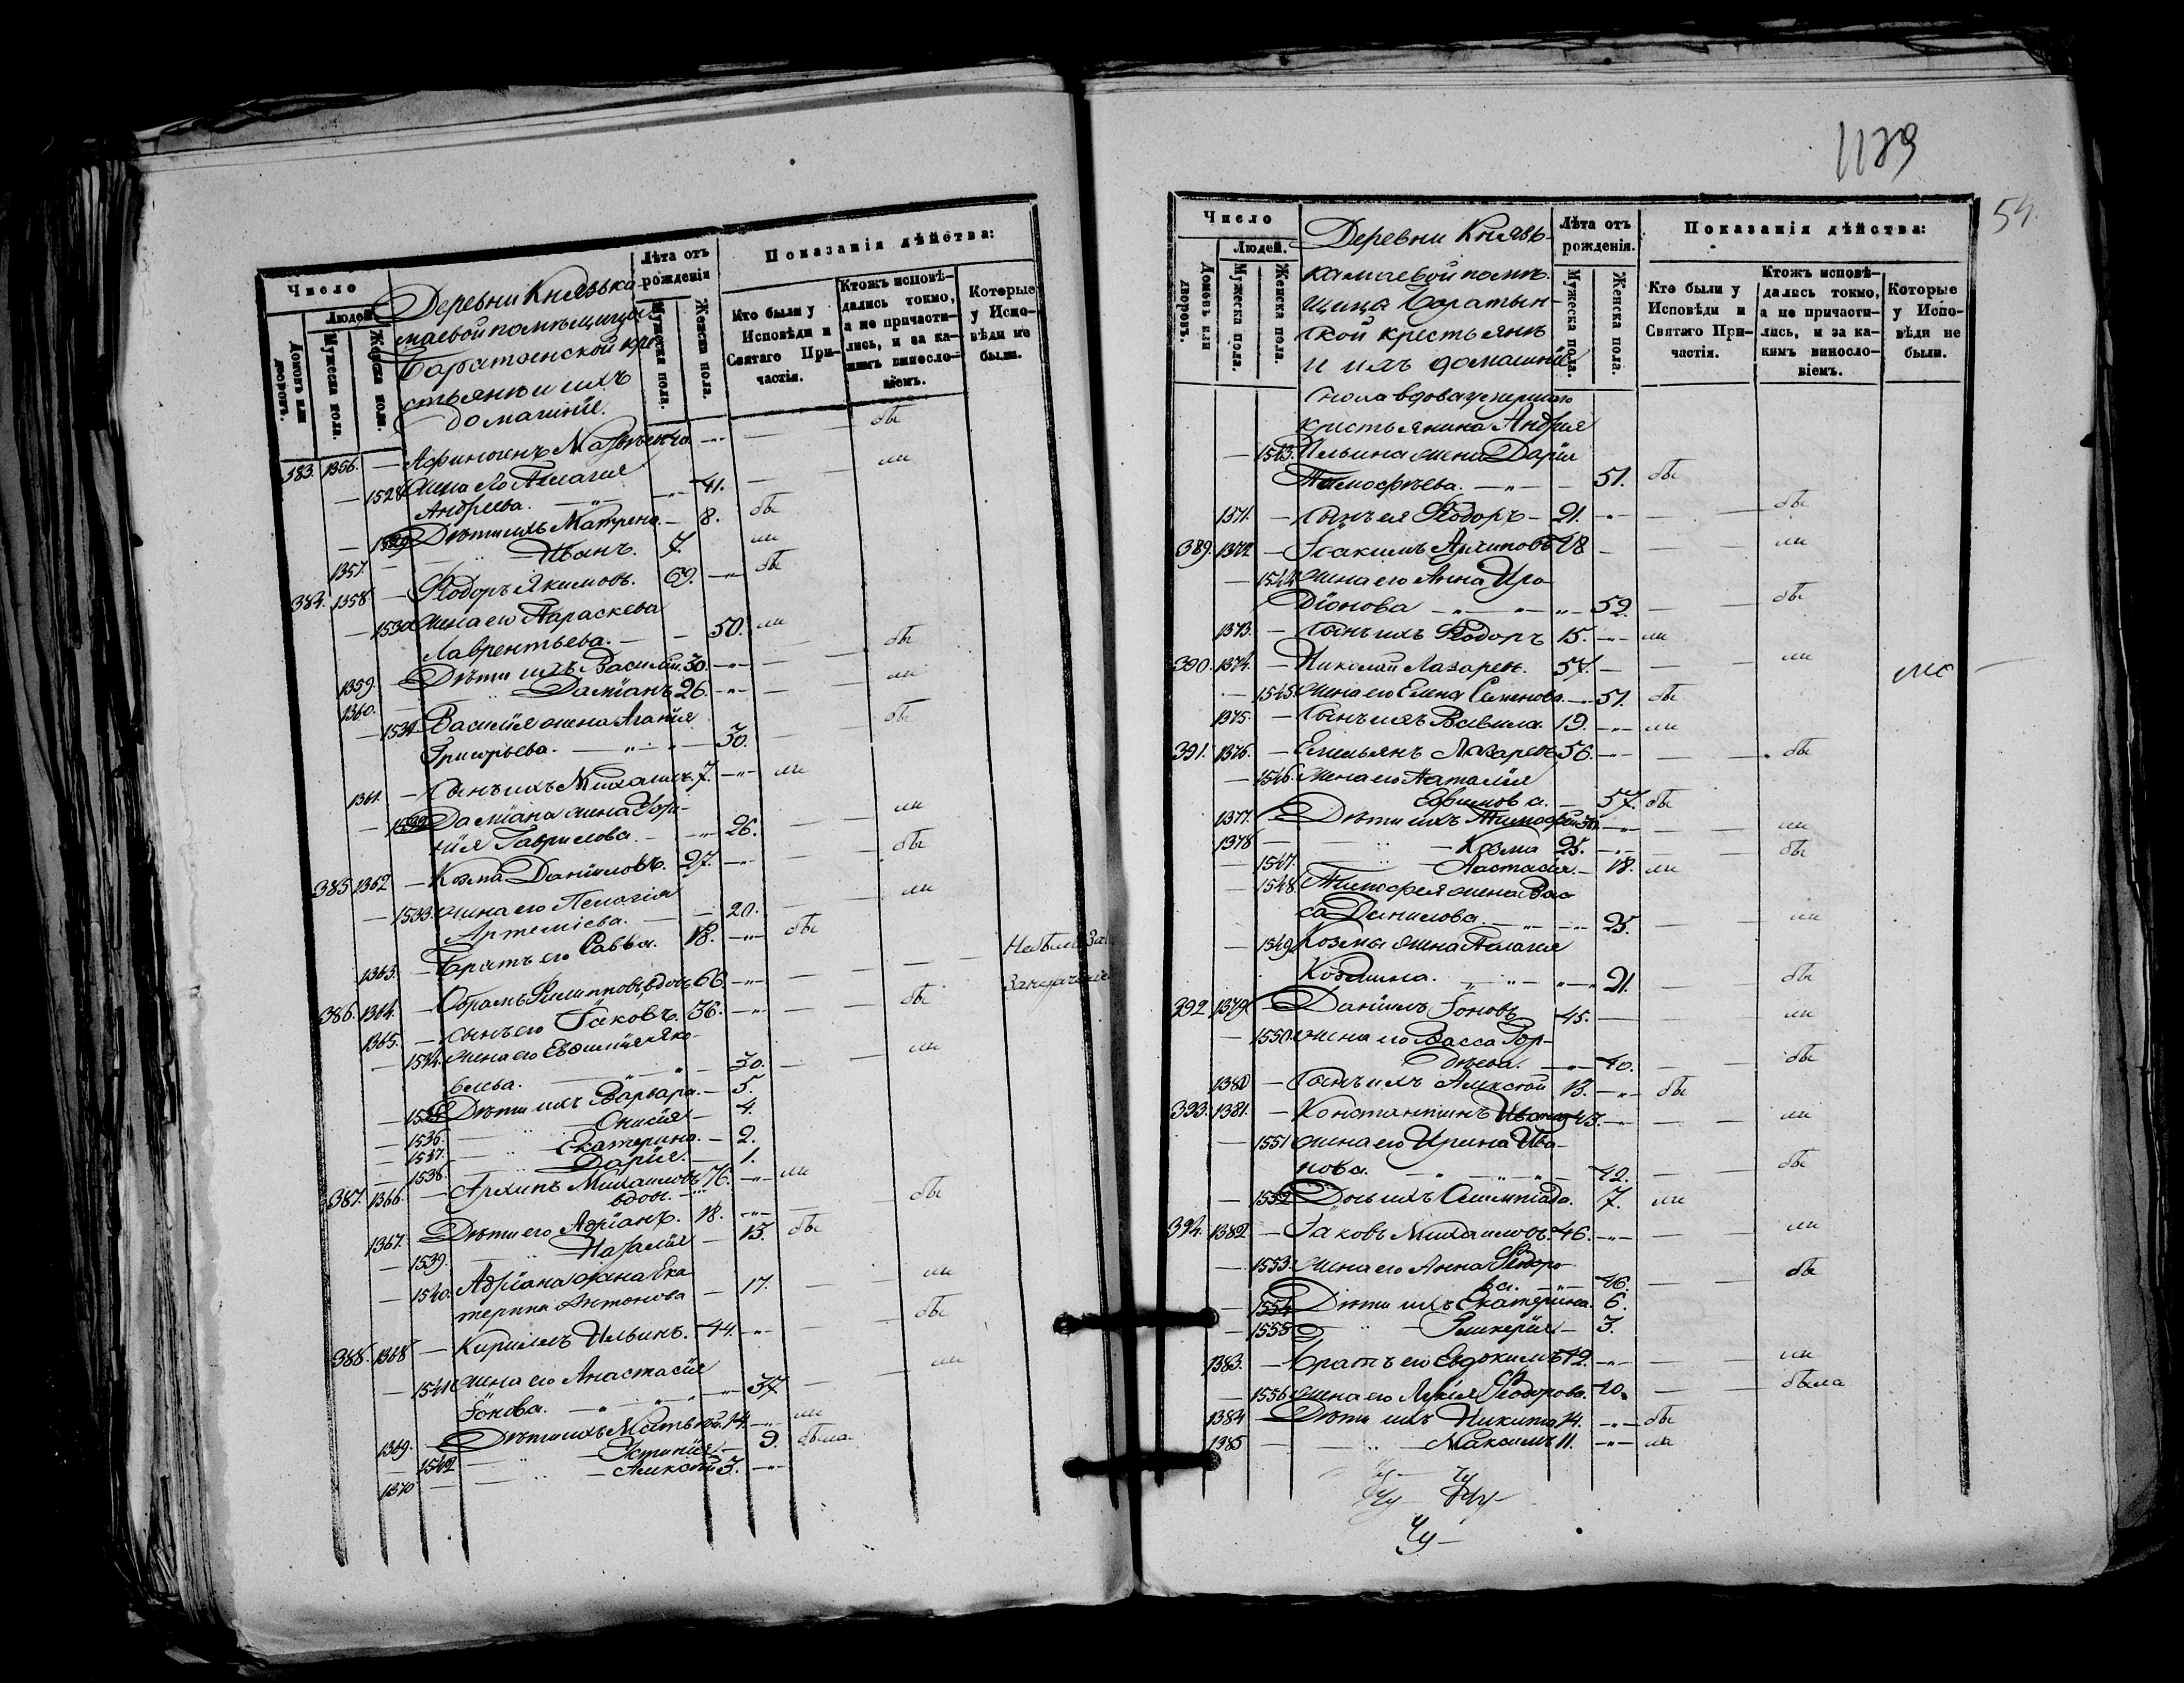 Число
Людей.
Домовъ или дворовъ.
Мужеска пола.
Женска пола.
Деревни Князька
маевой помѣщицы
Баратаенской кре
стьянъ и ихъ
домашніе.
Лѣта отъ рожденія
Мужеска пола.
Женска пола.
Показанія дѣйства:
Кто были у Исповѣди и Святаго Причастія.
Ктожъ исповѣдались токмо, а не причастились, и за какимъ винословіемъ.
Которые у Исповѣди не были.
383. 1356. — Афиногенъ — бы
— 1528 жена его Пелагія
Андреева. — 41. — ли
— 1529 Дѣти ихъ Матрена. — 8. бы
1357. — Иванъ. 7. ли
384. 1358. — Ѳедоръ Якимовъ. 69. — бы
— 1530 жена его Параскева
Лаврентьева. — 50. ли
1359. — Дѣти ихъ Василій. 30. — бы
1360. — Даміанъ 26. — ли
— 1531 Василія жена Агаѳія
Григорьева. — 30. — бы
1361. — Сынъ ихъ Михаилъ. 7. — ли
— 1532 Даміана жена
Гаврилова. — 26. — ли
385 1362 — Козма Даниловъ. 27. — бы
— 1533. жена его Пелагія
Артеміева. — 20. — ли
1363. — Братъ его Савва. 18. — бы
386. 1364. — Филиповъ, вдовъ 66. — Небылъ
1365. — Сынъ его Іаковъ. 36. — бы
— 1534. жена его Яко
влева. — 30. — ли
— 1535 Дѣти ихъ Варвара. — 5.
— 1536. — Онисія — 4.
— 1537. — Екатерина. — 2.
— 1538. — Дарія. — 1.
387. 1366. — Архипъ Михаиловъ 76. — ли
вдов.
1367. Дѣти его Адріанъ. 18. — бы
— 1539. — Наталія — 13. бы
— 1540. Адріана жена Ека
терина Антонова — 17. — ли
388. 1368 — Кириллъ Ильинъ. 44. — бы
— 1541 жена его Анастасія
Іонова. — 37 — ли
1369. — Дѣти ихъ Матвѣй. 14. — ли
— 1542 — Устинія — 9. была
1370 — Алексѣй 3. —
1139
54.
Число
Людей.
Домовъ или дворовъ.
Мужеска пола.
Женска пола.
Деревни Князь
камаевой помѣ
щицы Боратын
ской крестьянъ
и ихъ домашніе
Лѣта отъ рожденія.
Мужеска пола.
Женска пола.
Показанія дѣйства:
Кто были у Исповѣди и Святаго Причастія.
Ктожъ исповѣдались токмо, а не причастились, и за какимъ винословіемъ.
Которые у Исповѣди не были.
Сноха вдова умершаго
крестьянина Андрея
— 1543. Ильина жена Дарія
Тимофѣева. — 51. бы
1371. — Сынъ ея Ѳедоръ — 21. — бы
389. 1372 — Іоакимъ Архиповъ 48 — ли
— 1544 жена его Анна Иро
діонова — 52. — бы
1373. — Сынъ ихъ Ѳедоръ 15. — ли
390. 1374. — Николай Лазарев. 57. — ли
— 1545 жена его Елена Семенова. — 51. бы
1375. — Сынъ ихъ Вавила. 19. — ли
391. 1376. — Емельянъ Лазаревъ 56. — бы
— 1546. жена его Наталія
Ефимова. — 57. бы
1377. Дѣти ихъ Тимофей 30. — ли
1378 — Козма 25. — бы
— 1547. — Анастасія. — 18. ли
— 1548. Тимофея жена Вас
са Данилова. — 25. — ли
— 1549. Козмы жена Пелагія
Козмина. — 21. — бы
392 1379 — Даніилъ Іоновъ 45. — ли
— 1550 жена его Васса Гор
дѣева. — 40. — бы
1380 — Сынъ ихъ Алексѣй 13. — бы
393. 1381. — Константинъ Иванов 43. — ли
— 1551 жена его Ирина Ива
нова. — 42. — бы
— 1552 Дочь ихъ Олимпіада. 7. ли
394. 1382 — Іаковъ Михаиловъ. 46. — ли
— 1553. жена его Анна Ѳедоро
ва. — 46. — бы
— 1554 Дѣти ихъ Екатерина. 6.
— 1555 — Гликерія — 3.
1383. — Братъ его Евдокимъ 42. — ли
— 1556 жена его Ѳедорова. 40. — была
1384 — Дѣти ихъ Никита 14. — бы
1385 — Максимъ 11. — ли